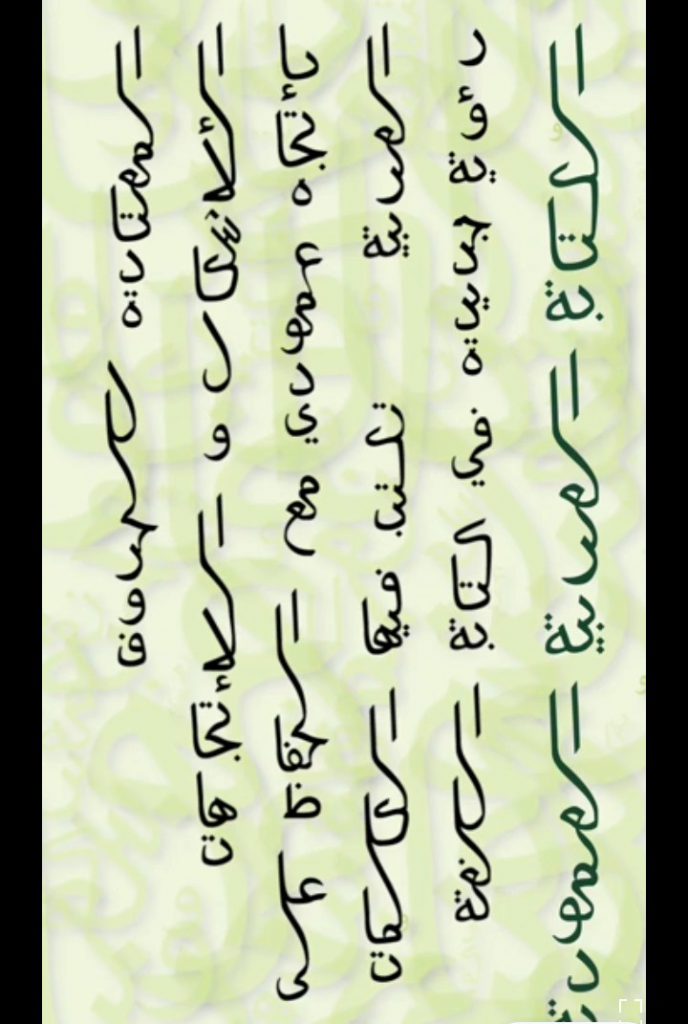 الكتابة العربية العمودية
رؤية جمالية في كتابة اللغة
العربية تكتب فيها الكلمات
بإتجاه عمودي مع الحفاظ على
الأشكال و الإتجاهات
المعتادة للحروف